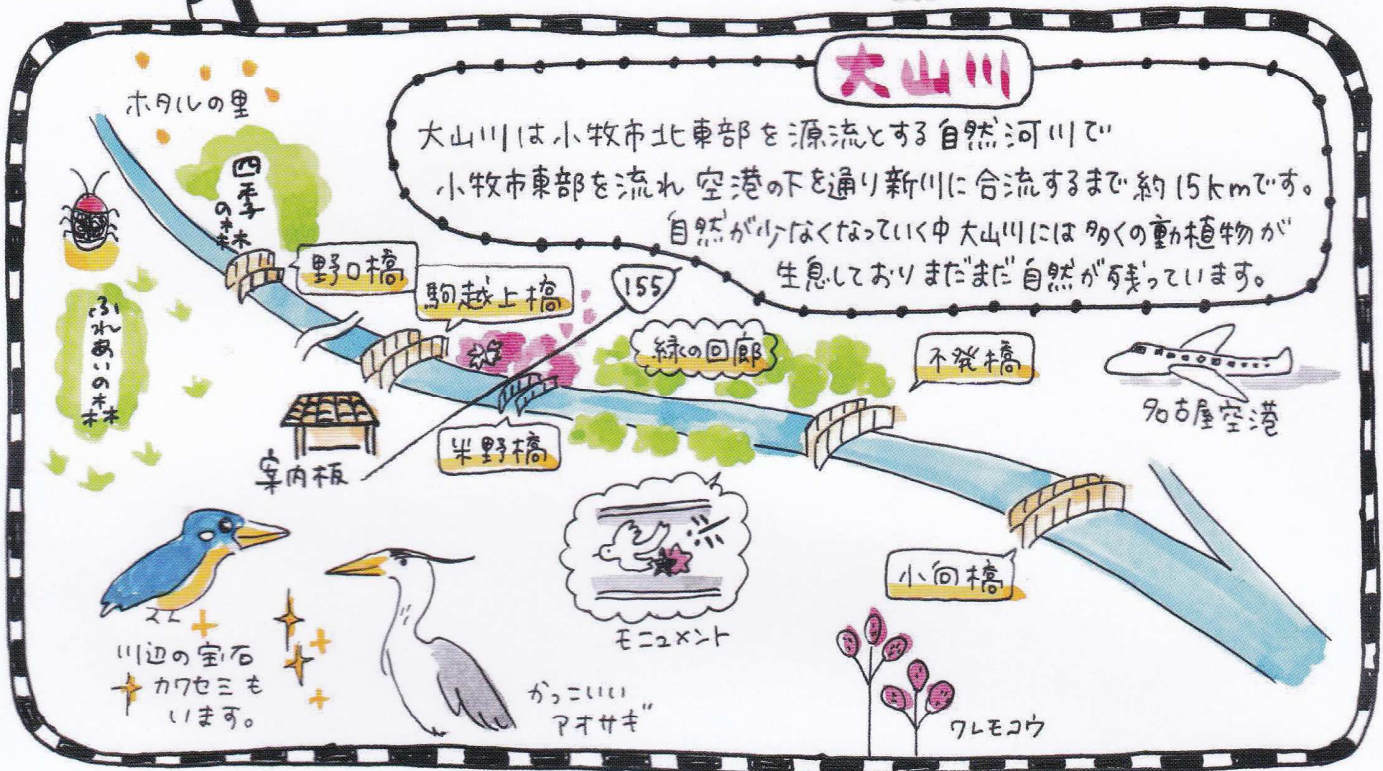 大山川
大山川は小牧市北東部を源流とする自然河川で
小牧市東部を流れ 空港の下を通り新川に合流するまで約15kmです。
自然が少なくなっていく中 大山川には多くの動植物が
生息しておりまだまだ自然が残っています。
ホタルの里
四季
の森
ふれあいの森
野口橋
駒越上橋
155
緑の回廊
不発橋
名古屋空港
案内板
米野橋
モニュメント
小向橋
川辺の宝石
カワセミも
います。
かっこいい
アオサギ
ワレモコウ